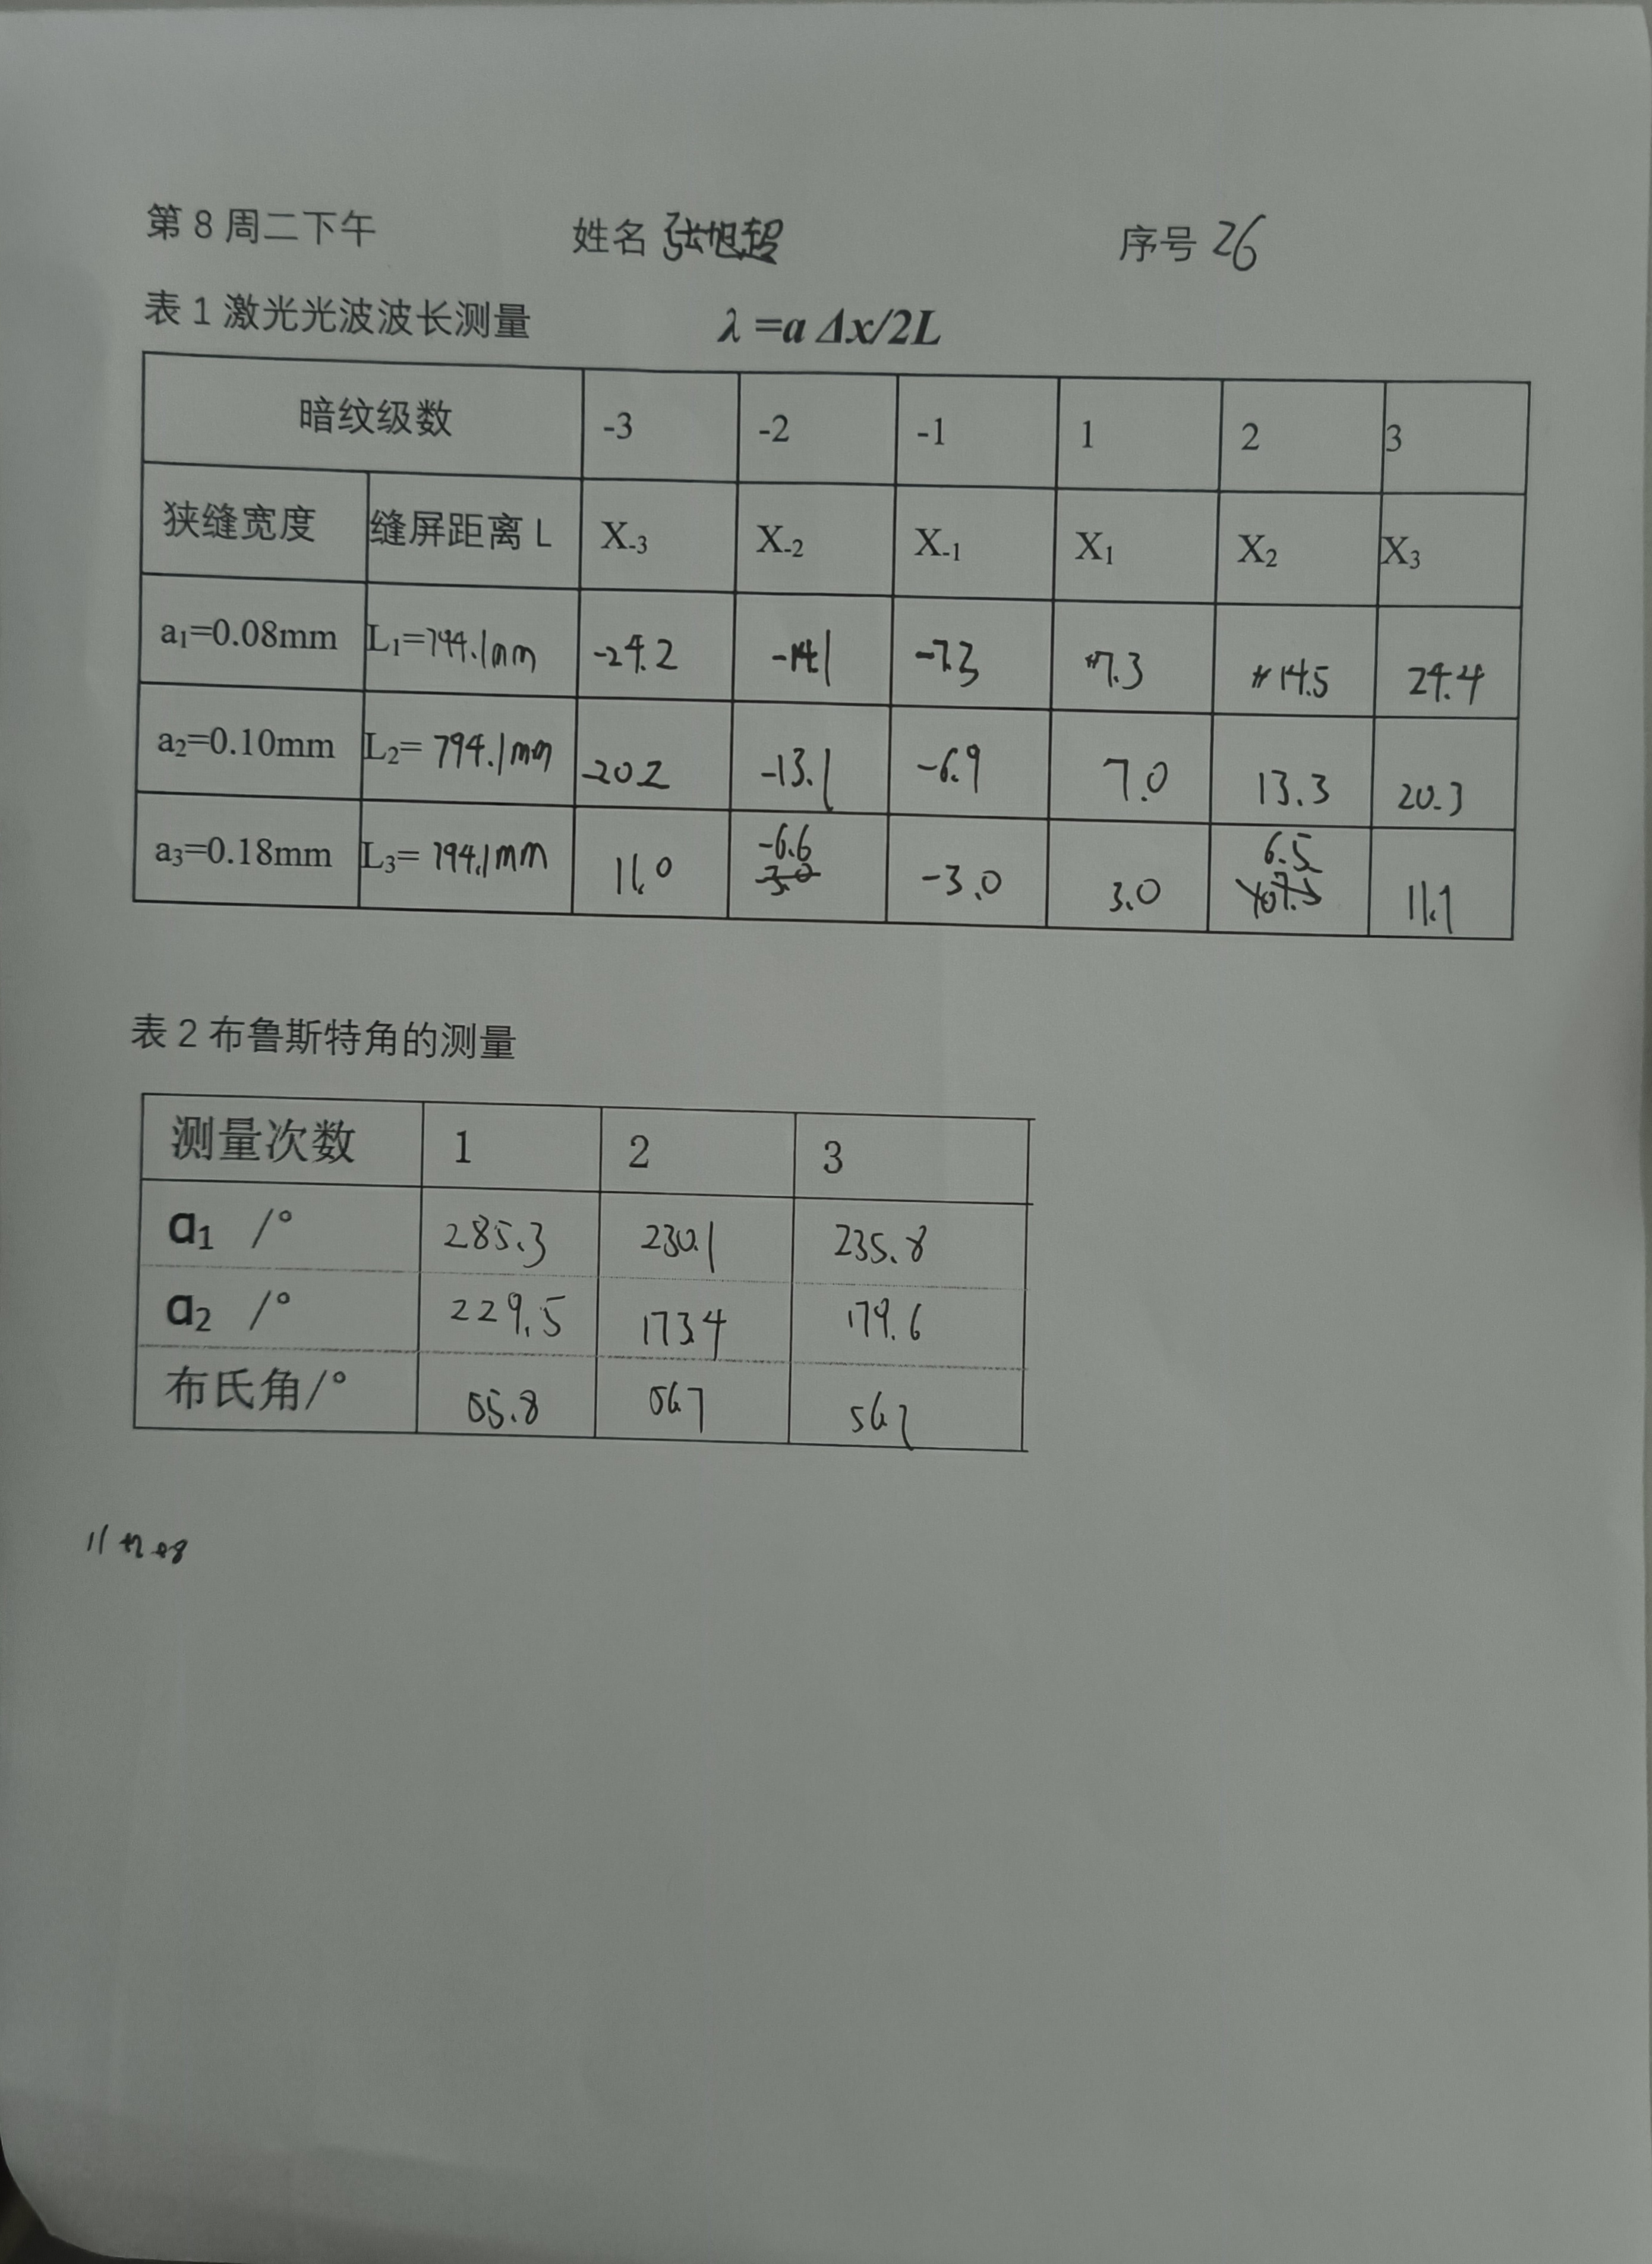 第 8 周二下午 姓名 张旭超 序号 26
表 1 激光光波波长测量 λ =a Δx/2L
暗纹级数 -3 -2 -1 1 2 3
狭缝宽度 缝屏距离 L X-3 X-2 X-1 X1 X2 X3
a1=0.08mm L1=794.1mm -24.2 -14.1 -7.3 7.3 14.5 24.4
a2=0.10mm L2= 794.1mm -20.2 -13.1 -6.9 7.0 13.3 20.3
a3=0.18mm L3= 794.1mm 11.0 -6.6 -3.0 3.0 6.5 11.1
表 2 布鲁斯特角的测量
测量次数 1 2 3
α1 /° 285.3 230.1 235.8
α2 /° 229.5 173.4 179.6
布氏角/° 55.8 56.7 56.2